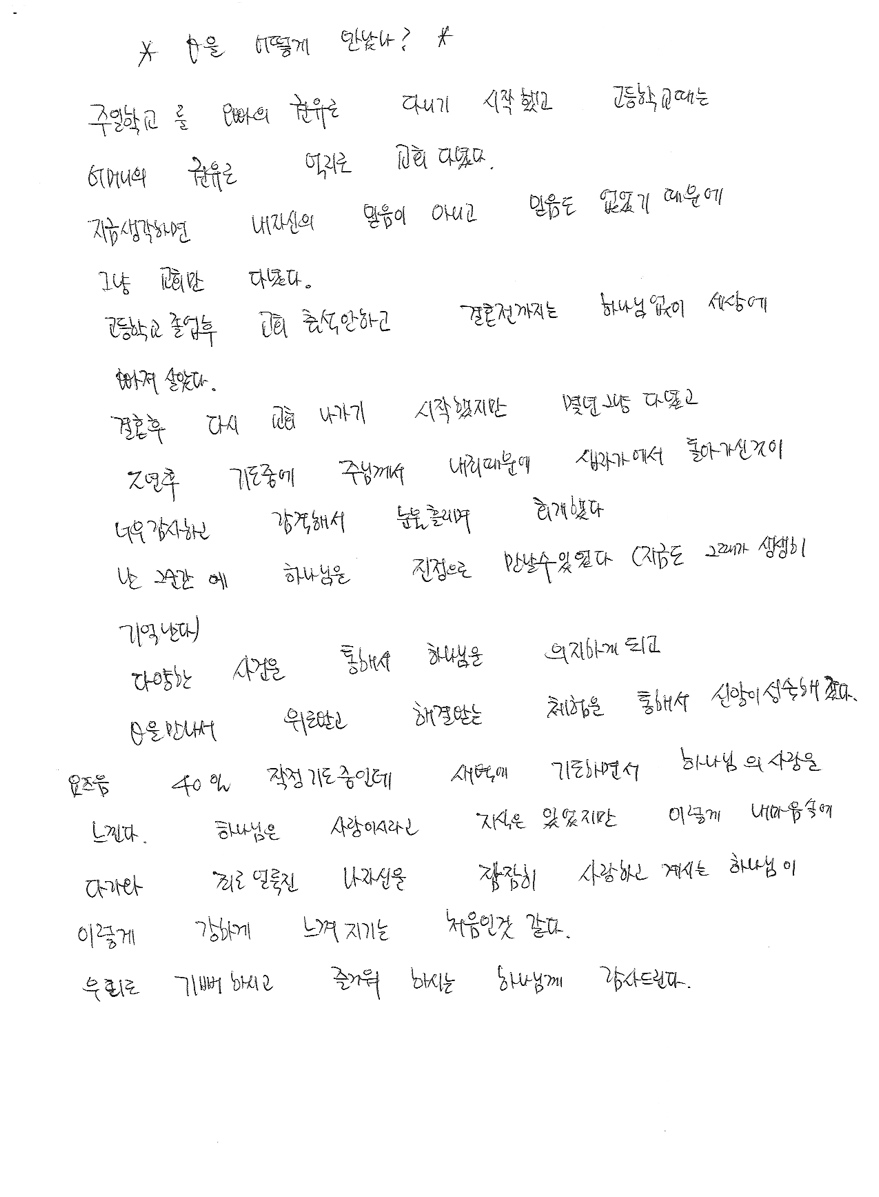 * θ을 어떻게 만났나? *
주일학교 를 오빠의 권유로 다니기 시작했고 고등학교때는
어머니의 권유로 억지로 교회 다녔다.
지금생각하면 내자신의 믿음이 아니고 믿음도 없었기 때문에
그냥 교회만 다녔다.
고등학교졸업후 교회 출석안하고 결혼전까지는 하나님없이 세상에
빠져 살았다.
결혼후 다시 교회 나가기 시작했지만 몇년그냥 다녔고
7년후 기도중에 주님께서 내죄때문에 십자가에서 돌아가신것이
너무감사하고 감격해서 눈물흘리며 회개했다
난 그순간에 하나님을 진정으로 만날수있었다 (지금도 그때가 생생히
기억난다)
다양한 사건을 통해서 하나님을 의지하게 되고
θ을만나서 위로받고 해결받는 체험을 통해서 신앙이성숙해 졌다.
요즈음 40일 작정기도중인데 새벽에 기도하면서 하나님의사랑을
느낀다. 하나님은 사랑이시라고 지식은 있었지만 이렇게 내마음속에
다가와 죄로얼룩진 나자신을 잠잠히 사랑하고 계시는 하나님이
이렇게 강하게 느껴지기는 처음인것 같다.
우리로 기뻐하시고 즐거워 하시는 하나님께 감사드린다.